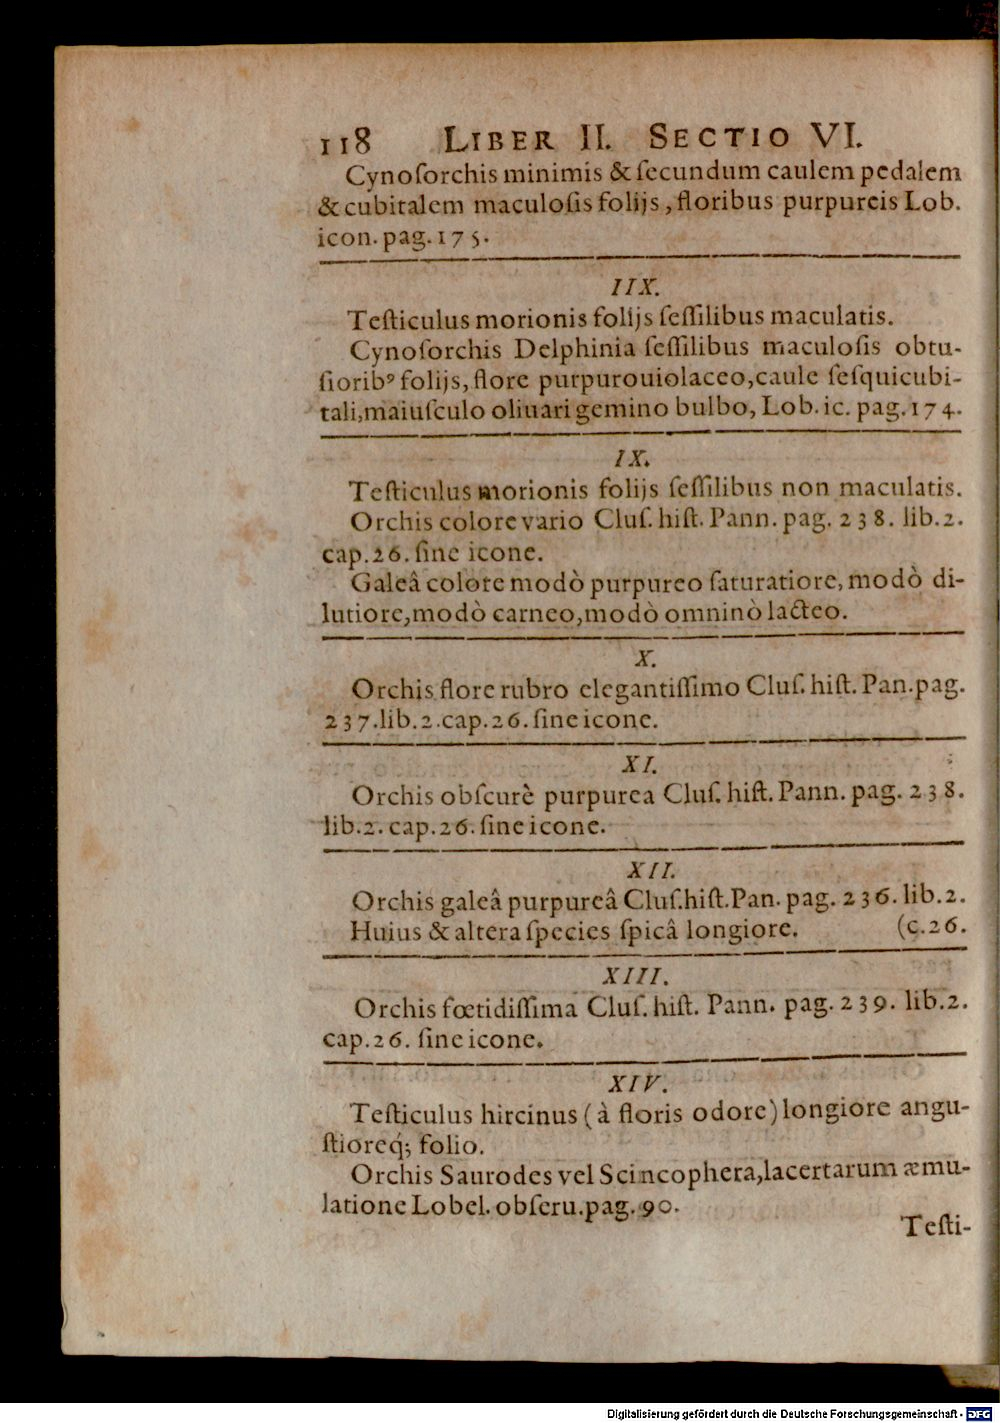 118 LIBER II. SECTIO VI.
Cynoſorchis minimis & ſecundum caulem pedalem
& cubitalem maculoſis folijs, floribus purpureis Lob.
icon. pag. 175.
IIX.
Teſticulus morionis folijs ſeſſilibus maculatis.
Cynoſorchis Delphinia ſeſſilibus maculoſis obtu-
ſioribꝰ folijs, flore purpurouiolaceo, caule ſeſquicubi-
tali, maiuſculo oliuari gemino bulbo, Lob. ic. pag. 174.
IX.
Teſticulus morionis folijs ſeſſilibus non maculatis.
Orchis colore vario Cluſ. hiſt. Pann. pag. 238. lib. 2.
cap. 26. ſine icone.
Galeâ colore modò purpureo ſaturatiore, modò di-
lutiore, modò carneo, modò omninò lacteo.
X.
Orchis flore rubro elegantiſſimo Cluſ. hiſt. Pan. pag.
237. lib. 2. cap. 26. ſine icone.
XI.
Orchis obſcurè purpurea Cluſ. hiſt. Pann. pag. 238.
lib. 2. cap. 26. ſine icone.
XII.
Orchis galeâ purpureâ Cluſ. hiſt. Pan. pag. 236. lib. 2.
Huius & altera ſpecies ſpicâ longiore. (c. 26.
XIII.
Orchis fœtidiſſima Cluſ. hiſt. Pann. pag. 239. lib. 2.
cap. 26. ſine icone.
XIV.
Teſticulus hircinus (à floris odore) longiore angu-
ſtioreq́; folio.
Orchis Saurodes vel Scincophera, lacertarum æmu-
latione Lobel. obſeru. pag. 90.
Teſti-
Digitalisierung gefördert durch die Deutsche Forschungsgemeinschaft - DFG